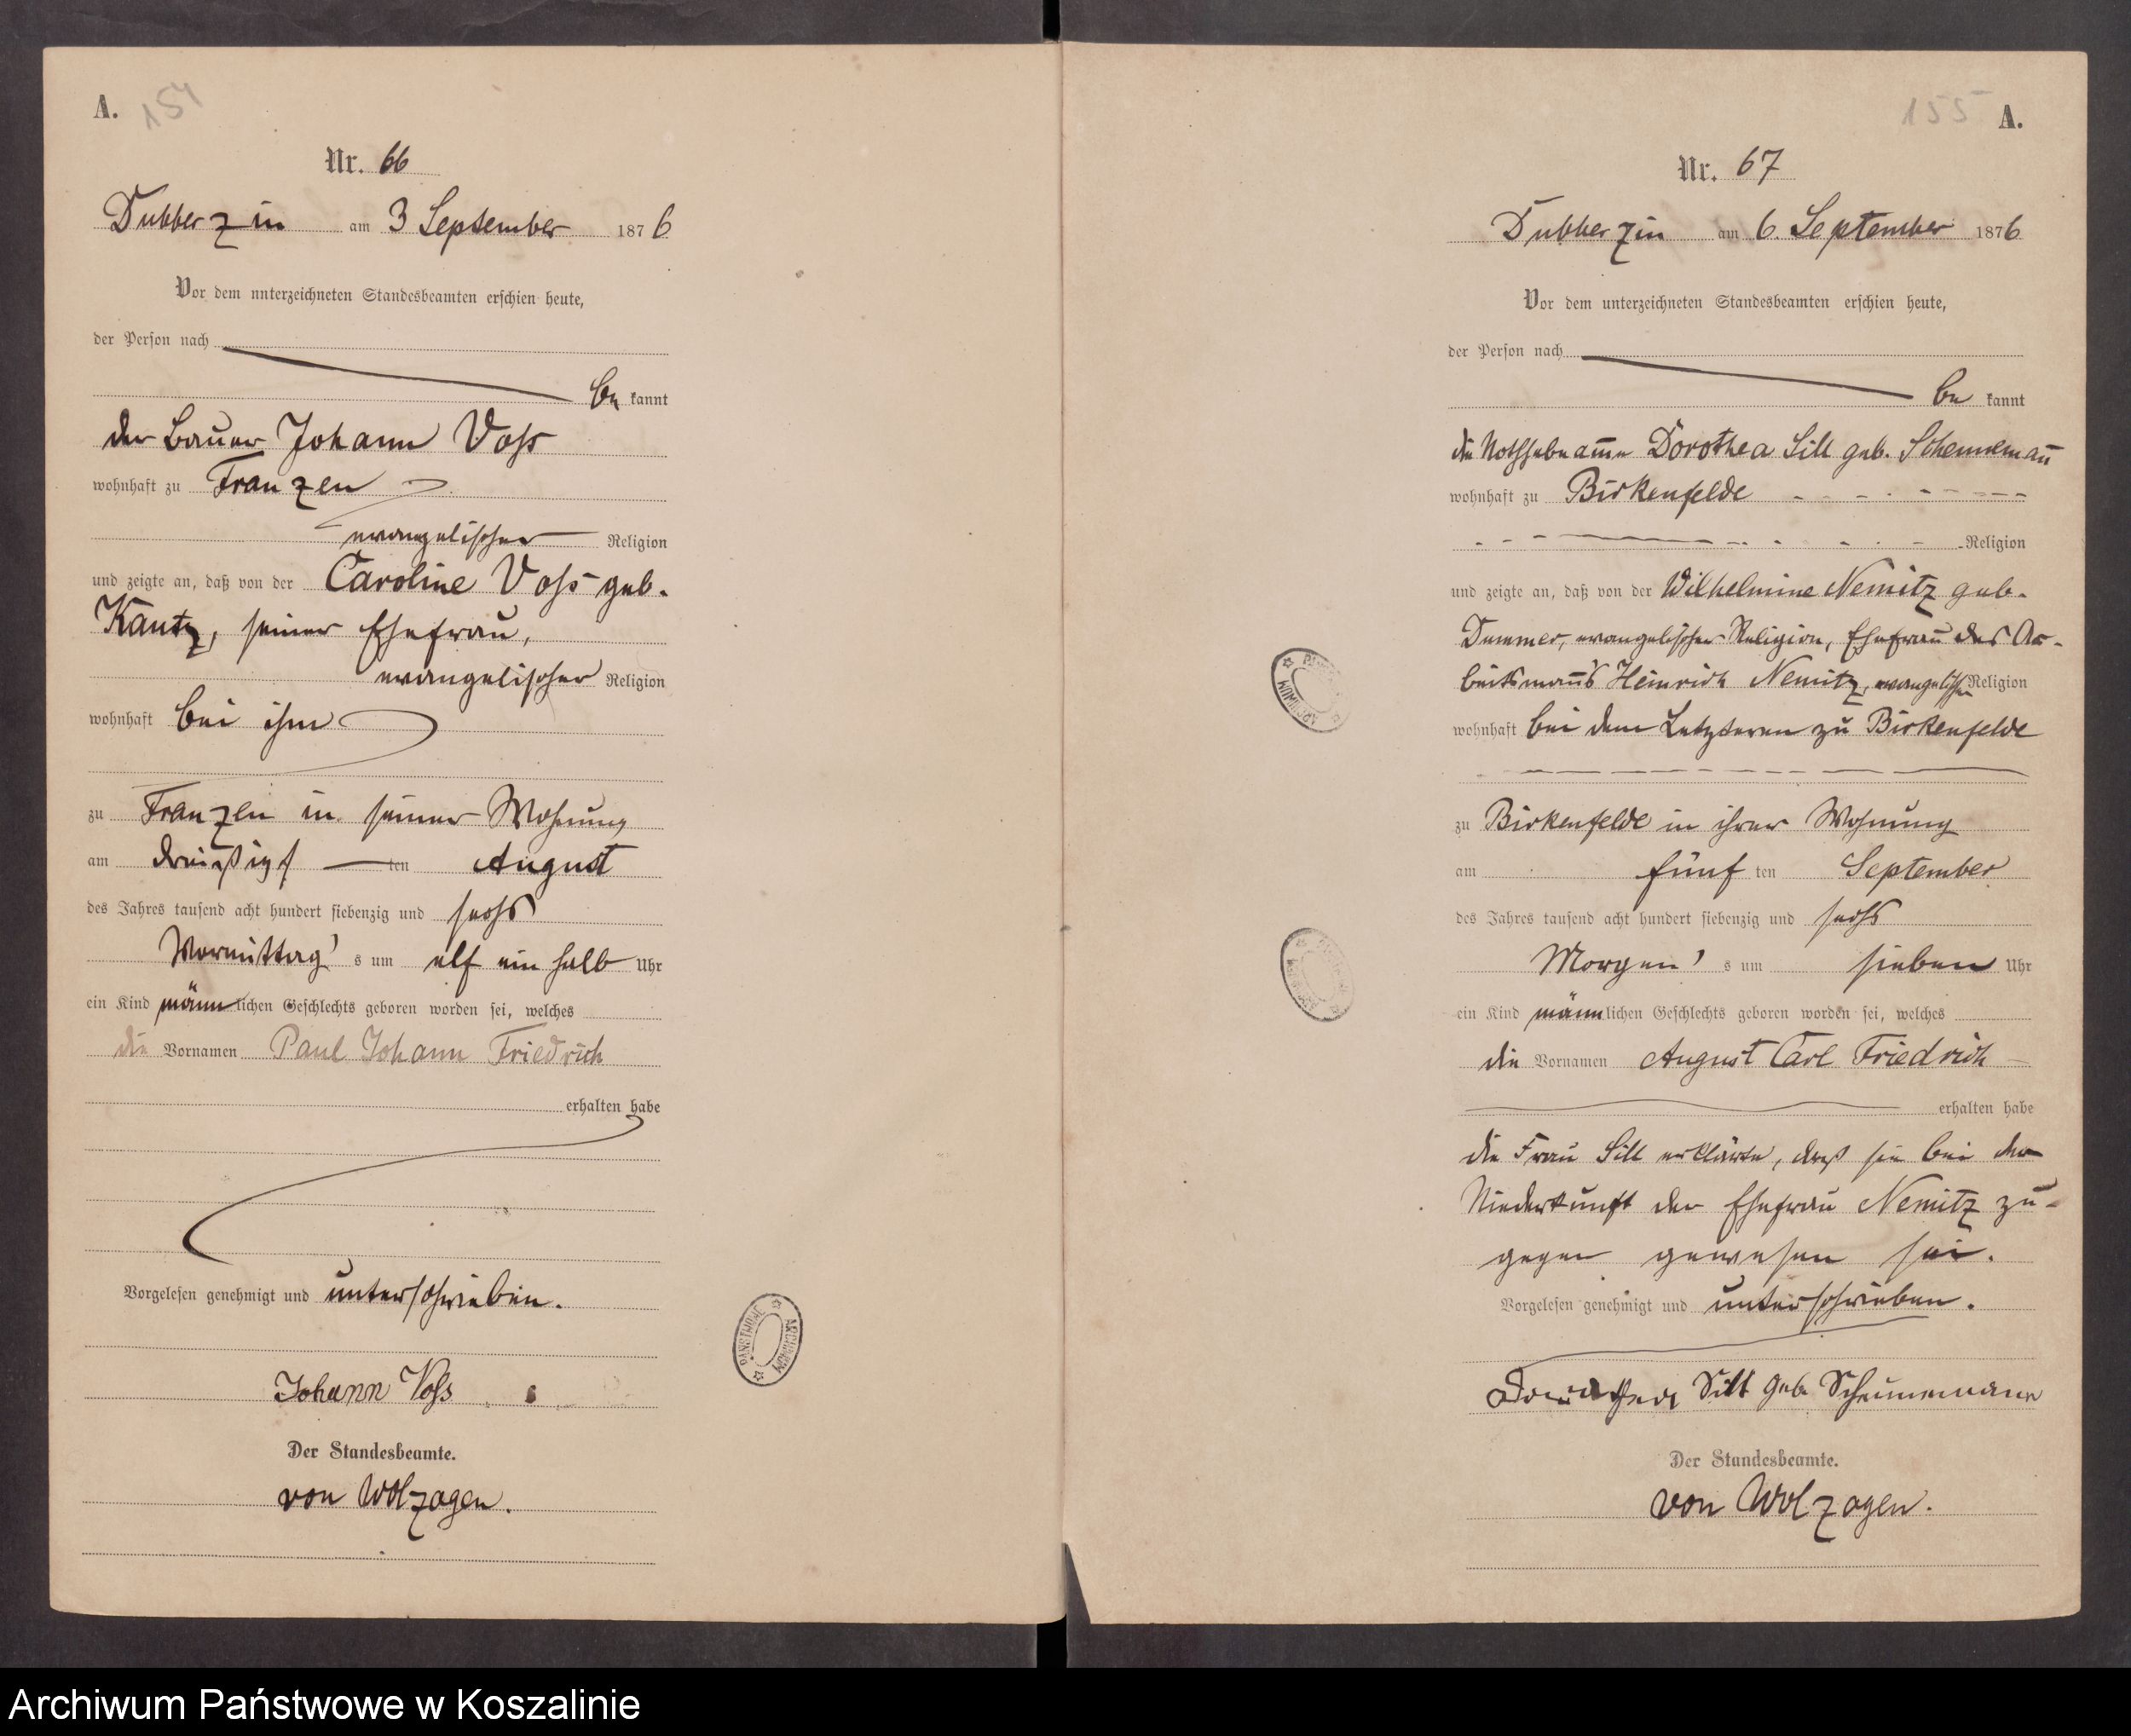 A. 154
Nr. 66
Dubberzin am 3 September 1876
Vor dem unterzeichneten Standesbeamten erschien heute,
der Person nach
be kannt
der Bauer Johann Voss
wohnhaft zu Franzen
evangelischer Religion
und zeigte an, daß von der Caroline Voss geb.
Kautz, seiner Ehefrau,
evangelischer Religion
wohnhaft bei ihm
zu Franzen in seiner Wohnung
am dreißigs ten August
des Jahres tausend acht hundert siebenzig und sechs
Vormittag's um elf ein halb Uhr
ein Kind männlichen Geschlechts geboren worden sei, welches
die Vornamen Paul Johann Friedrich
erhalten habe
Vorgelesen genehmigt und unterschrieben.
Johann Voss
Der Standesbeamte.
von Wolzogen.
PAŃSTWOWE ARCHIWUM
155 A.
Nr. 67
Dubberzin am 6. September 1876
Vor dem unterzeichneten Standesbeamten erschien heute,
der Person nach
be kannt
die Nothhebeamme Dorothea Sill geb. Scheunemann
wohnhaft zu Birkenfelde
Religion
und zeigte an, daß von der Wilhelmine Nemitz geb.
Dummer, evangelischer Religion, Ehefrau des Ar-
beitsmann's Heinrich Nemitz, evangelischer Religion
wohnhaft bei dem Letzteren zu Birkenfelde
zu Birkenfelde in ihrer Wohnung
am fünf ten September
des Jahres tausend acht hundert siebenzig und sechs
Morgen's um sieben Uhr
ein Kind männlichen Geschlechts geboren worden sei, welches
die Vornamen August Carl Friedrich
erhalten habe
die Frau Sill erklärte, daß sie bei der
Niederkunft der Ehefrau Nemitz zu-
gegen gewesen sei.
Vorgelesen genehmigt und unterschrieben.
Dorothea Sill geb Scheunemann
Der Standesbeamte.
von Wolzogen.
Archiwum Państwowe w Koszalinie